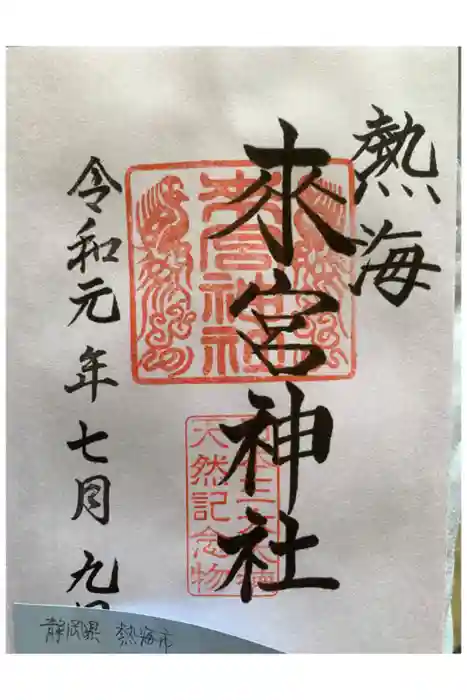 熱海
來宮神社
令和元年七月九日
來宮神社
天然記念物
静岡県 熱海市